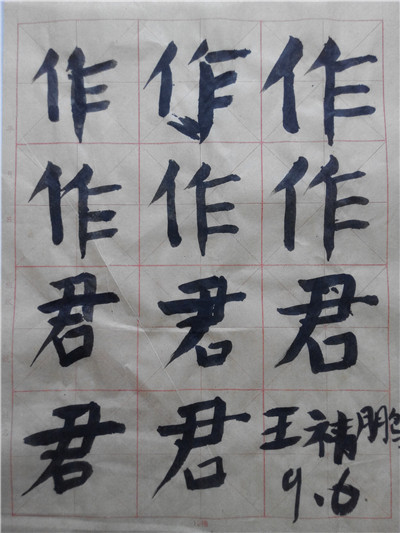 作作作
作作作
君君君
君君王禙鹏
9.6